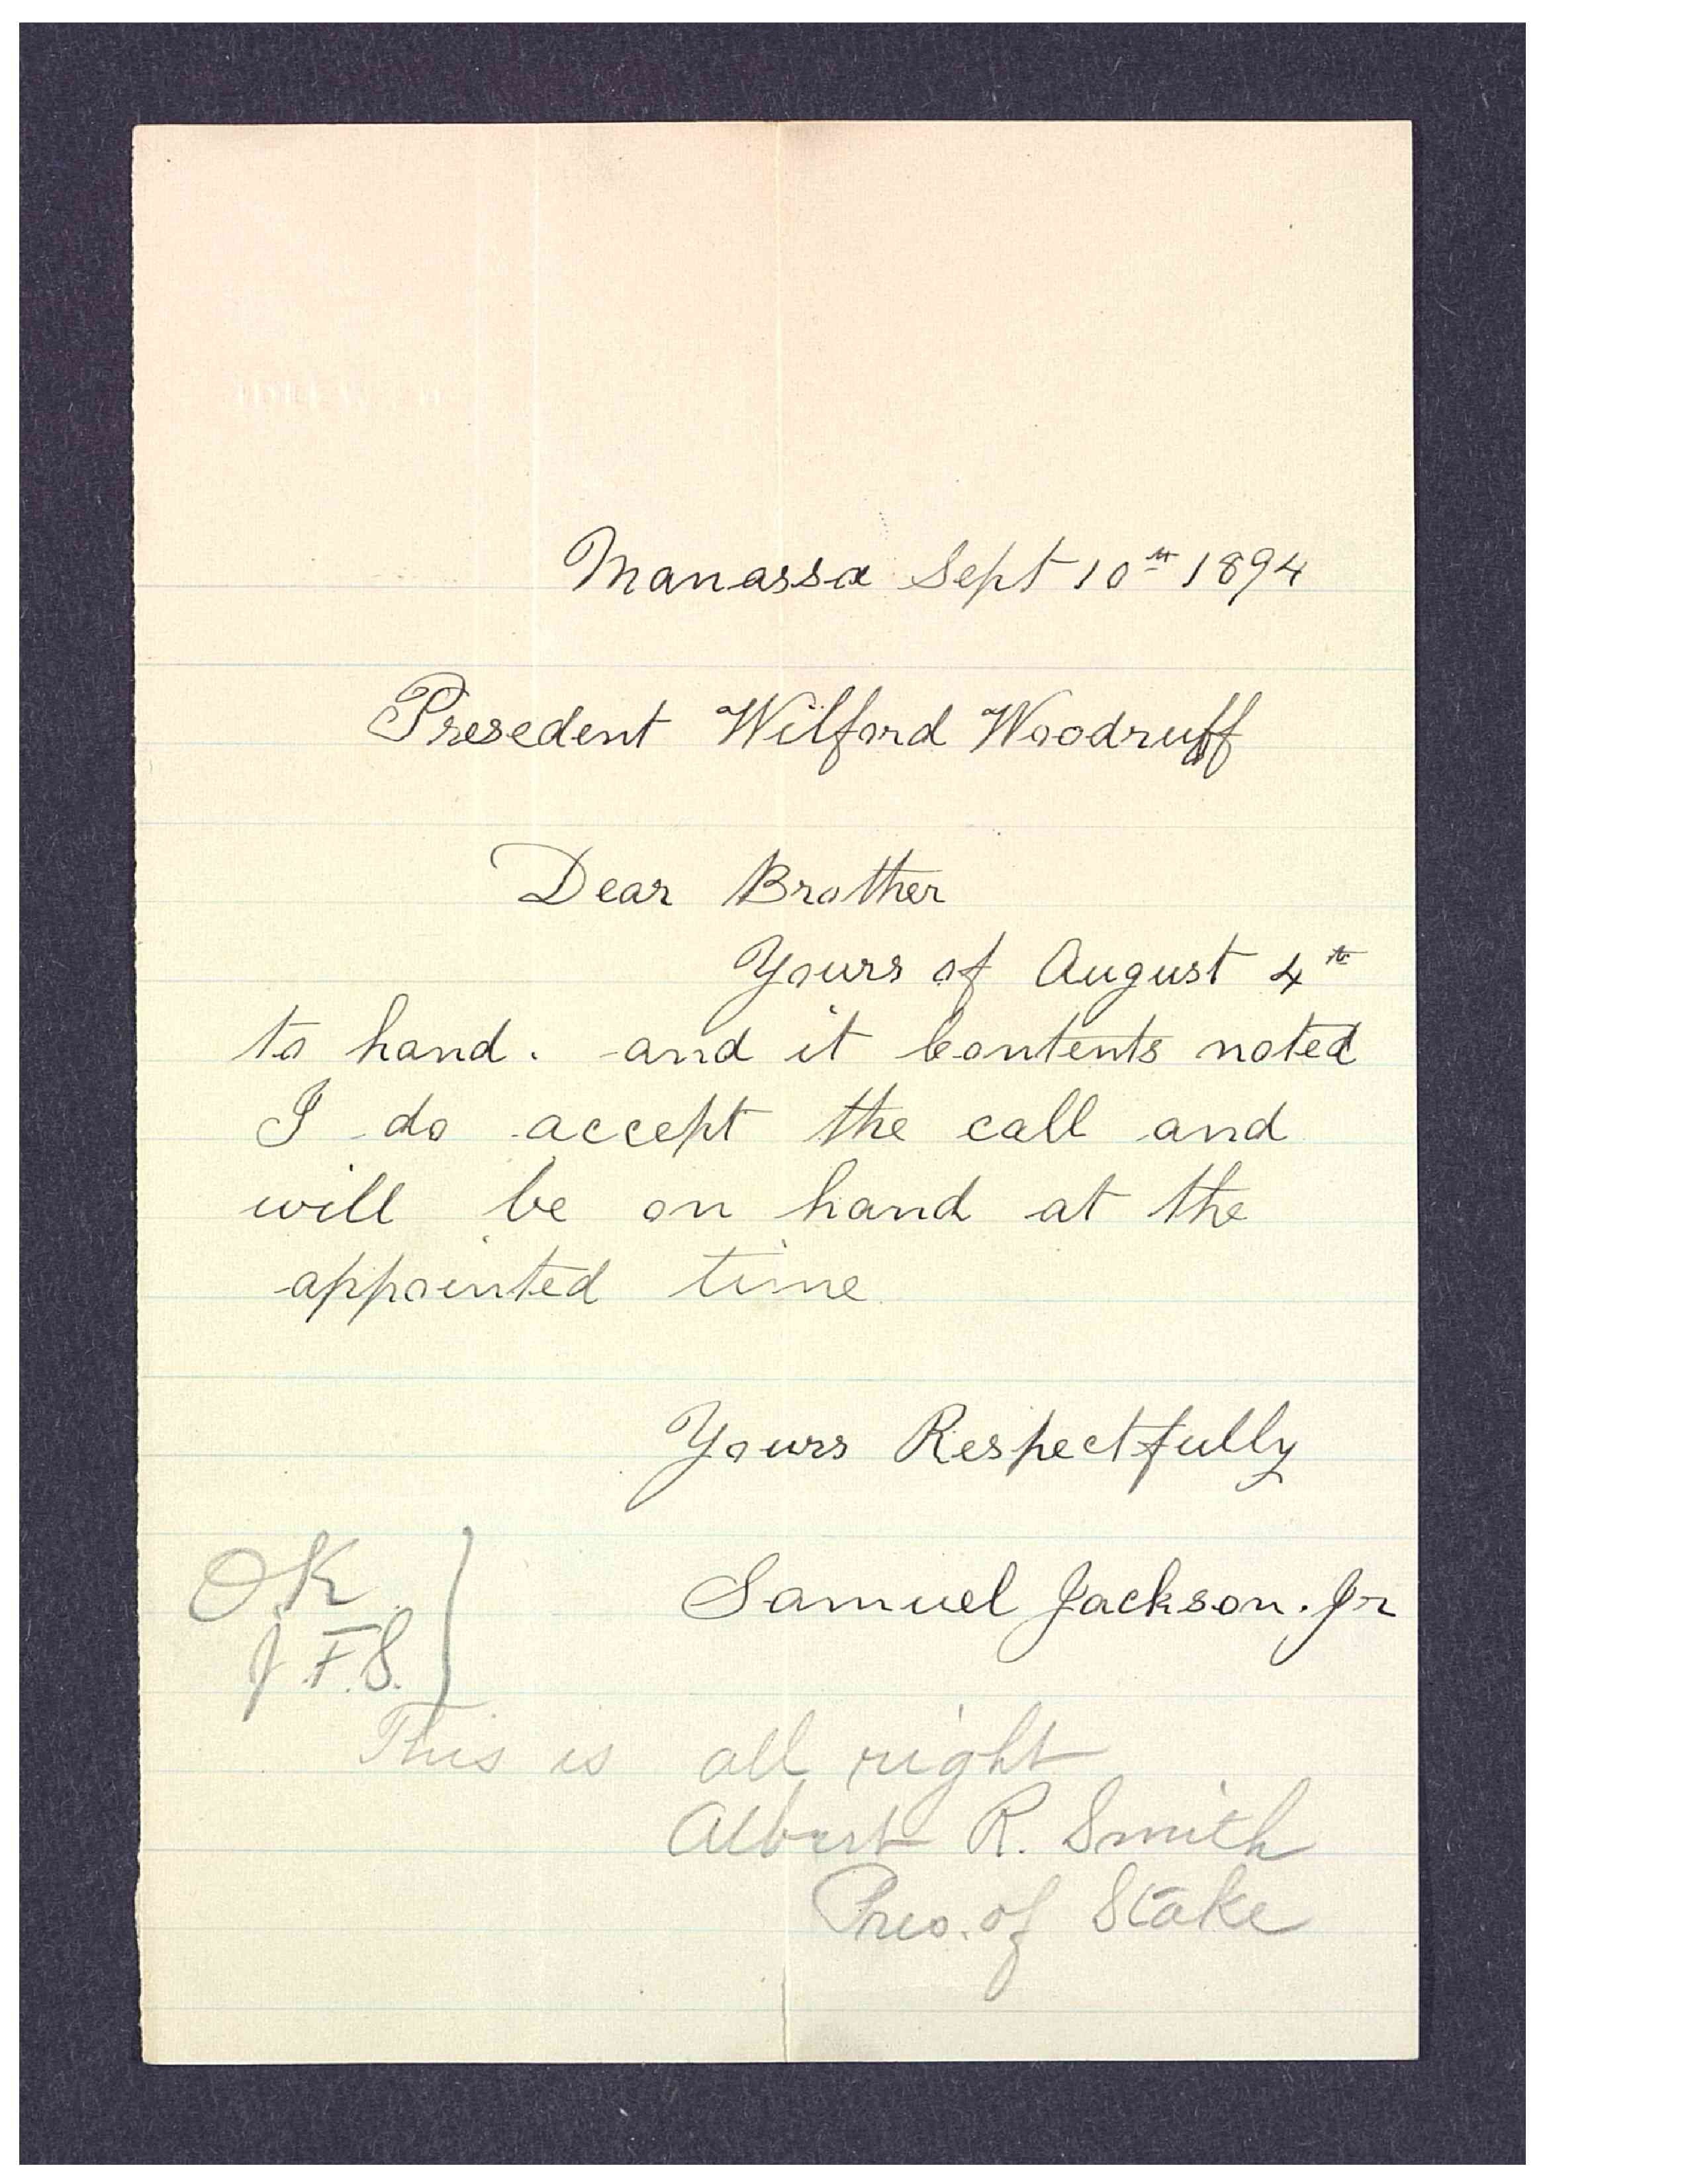 Manassa Sept 10th 1894
Presedent Wilford Woodruff
Dear Brother
Yours of August 4th
to hand. and it Contents noted
I do accept the call and
will be on hand at the
appointed time
Yours Respectfully
Samuel Jackson. Jr
OK
J.F.S.
This is all right
Albert R. Smith
Pres. of Stake